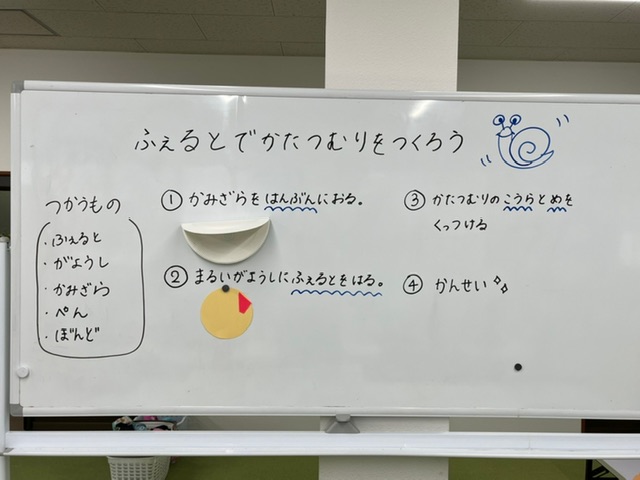 ふぇるとでかたつむりをつくろう
つかうもの
・ふぇると
・がようし
・かみざら
・ぺん
・ぼんど
① かみざらをはんぶんにおる。
② まるいがようしにふぇるとをはる。
③ かたつむりのこうらとめを
くっつける
④ かんせい